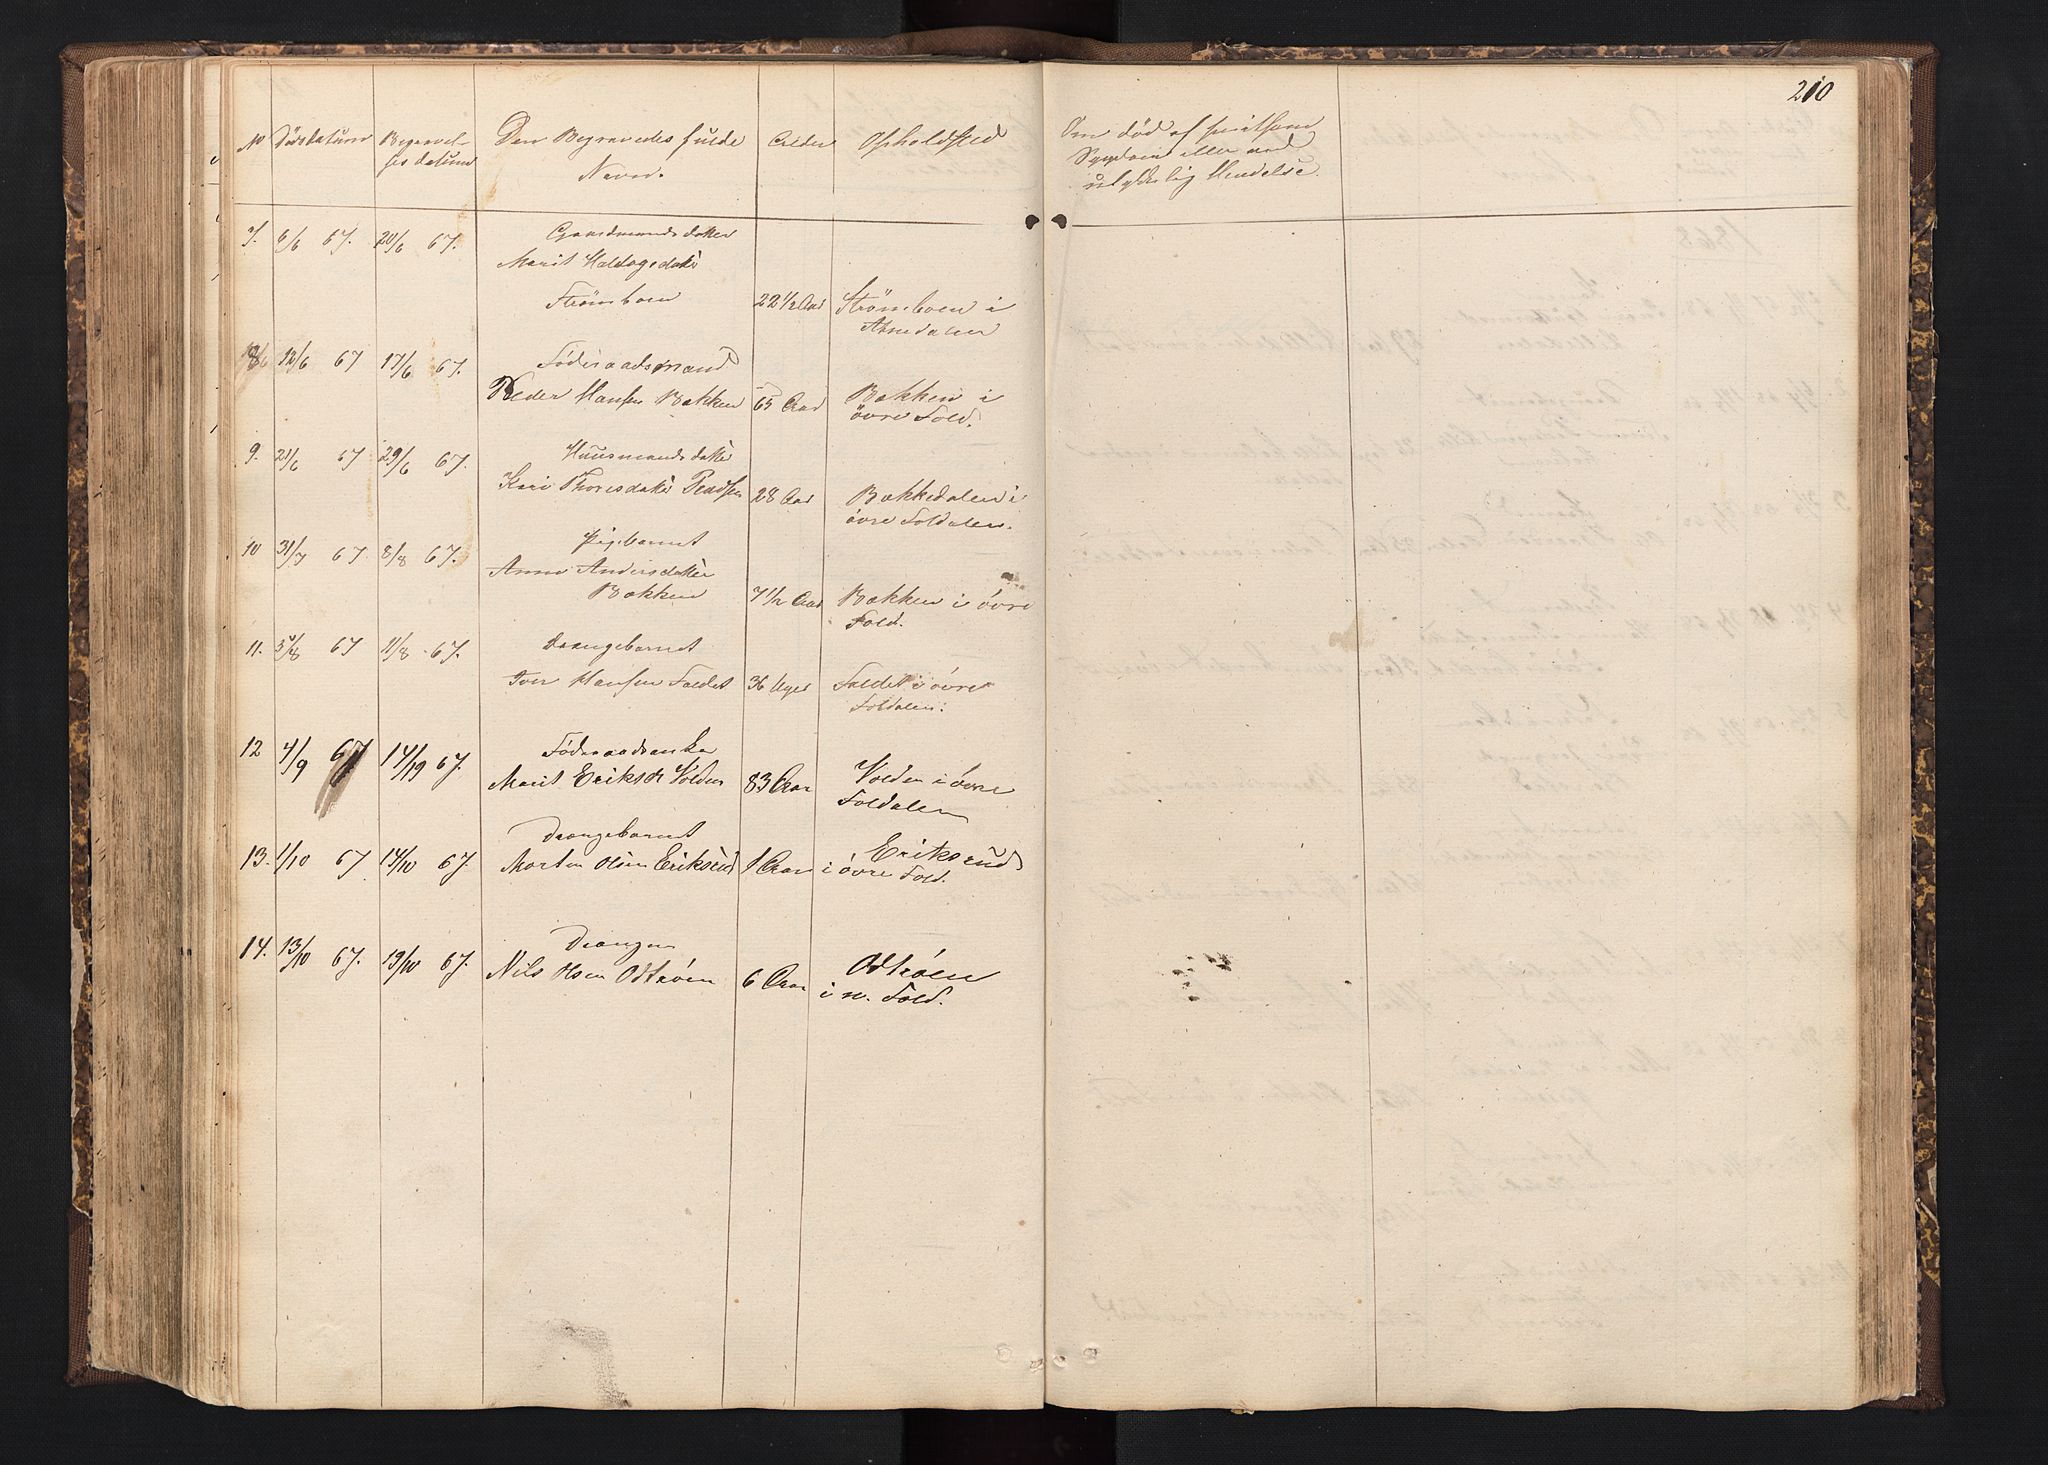 210
No Dödsdatum Begravel- Den Begravedes fulde Alder Opholdsted Om död af smitsom
ses datum Navn. Sygdom eller ved
ulykkelig Hendelse.
7. 6/6 67. 20/6 67. Gaardmandsdatter
Marit
Strömboen 22 1/2 Aar Strömboen i
8 12/6 67 17/6 67. Föderaadsmand
Peder Hansen Bakken 65 Aar Bakken i
övre Fold.
9. 21/6 67 29/6 67. Huusmandsdatter
Kari Thoresdatter 28 Aar Bakkedalen i
övre Foldalen.
10 31/7 67 8/8 67. Pigebarnet
Anne Andersdatter
Bakken 7 1/2 Aar Bakken i övre
Fold.
11. 5/8 67 11/8 67. Drængebarnet
Iver Hansen Faldet 36 Uger Faldet i övre
Foldalen.
12 4/9 67 14/9 67. Föderaadsenke
Marit Eriksd. Volden 83 Aar Volden i övre
Foldalen
13. 1/10 67 14/10 67. Drængebarnet
Morten Olsen Eriksrud 1 Aar Eriksrud
i övre Fold.
14. 13/10 67. 19/10 67. Drængen
Nils Olsen Odtröen 6 Aar Odtröen
i n. Fold.